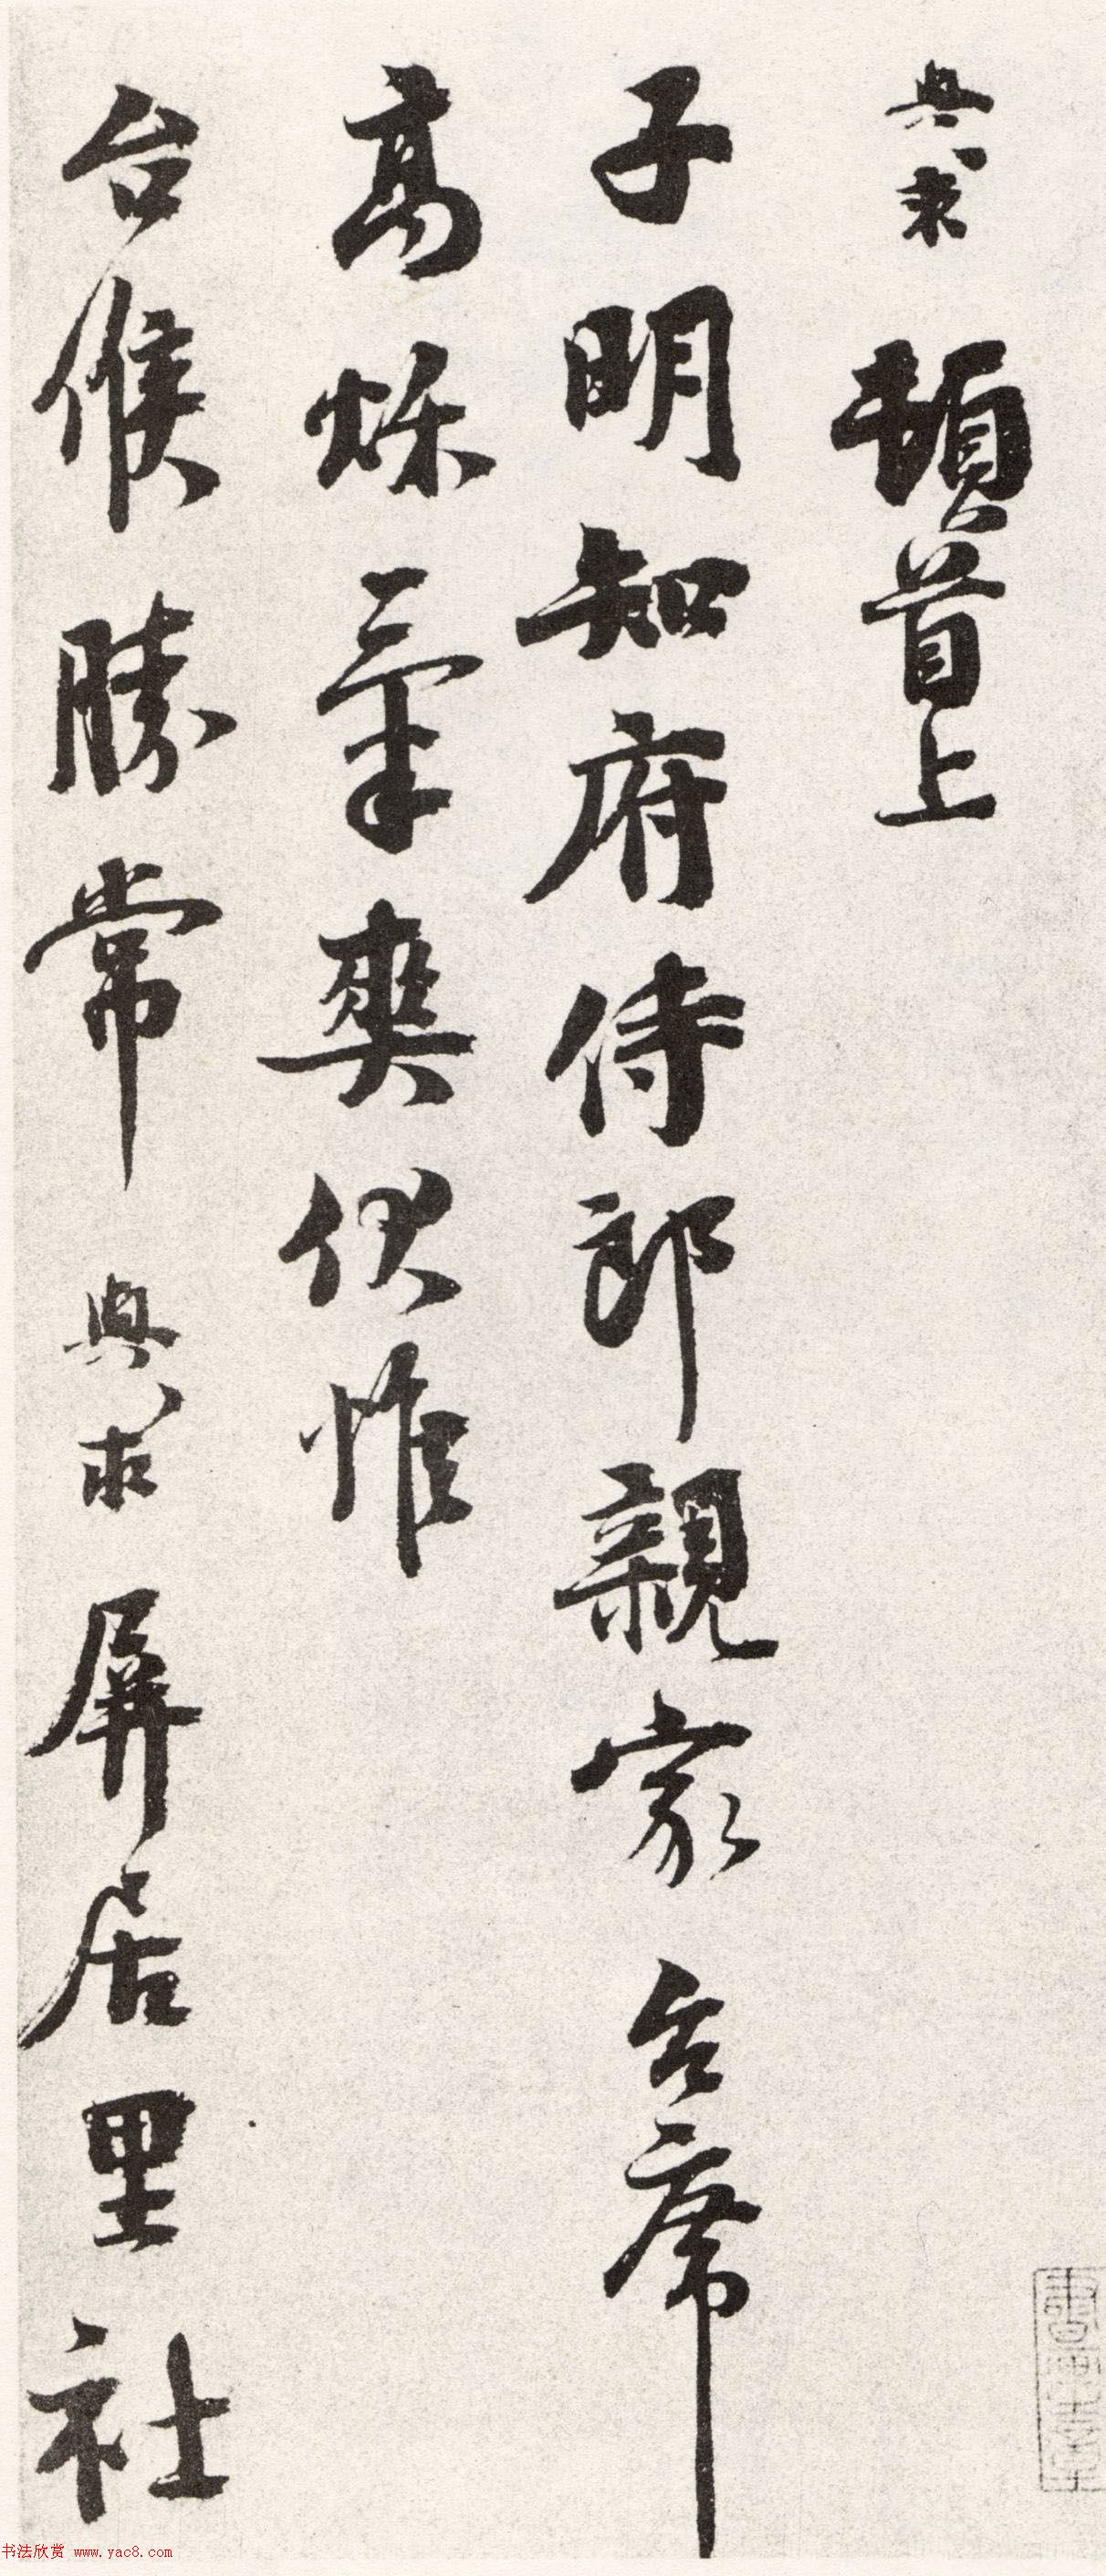 與求 頓首上
子明知府侍郎親家 台席
高烁氣爽伏惟
台候勝常 與求 屏居里社
书法欣赏 www.yac8.com